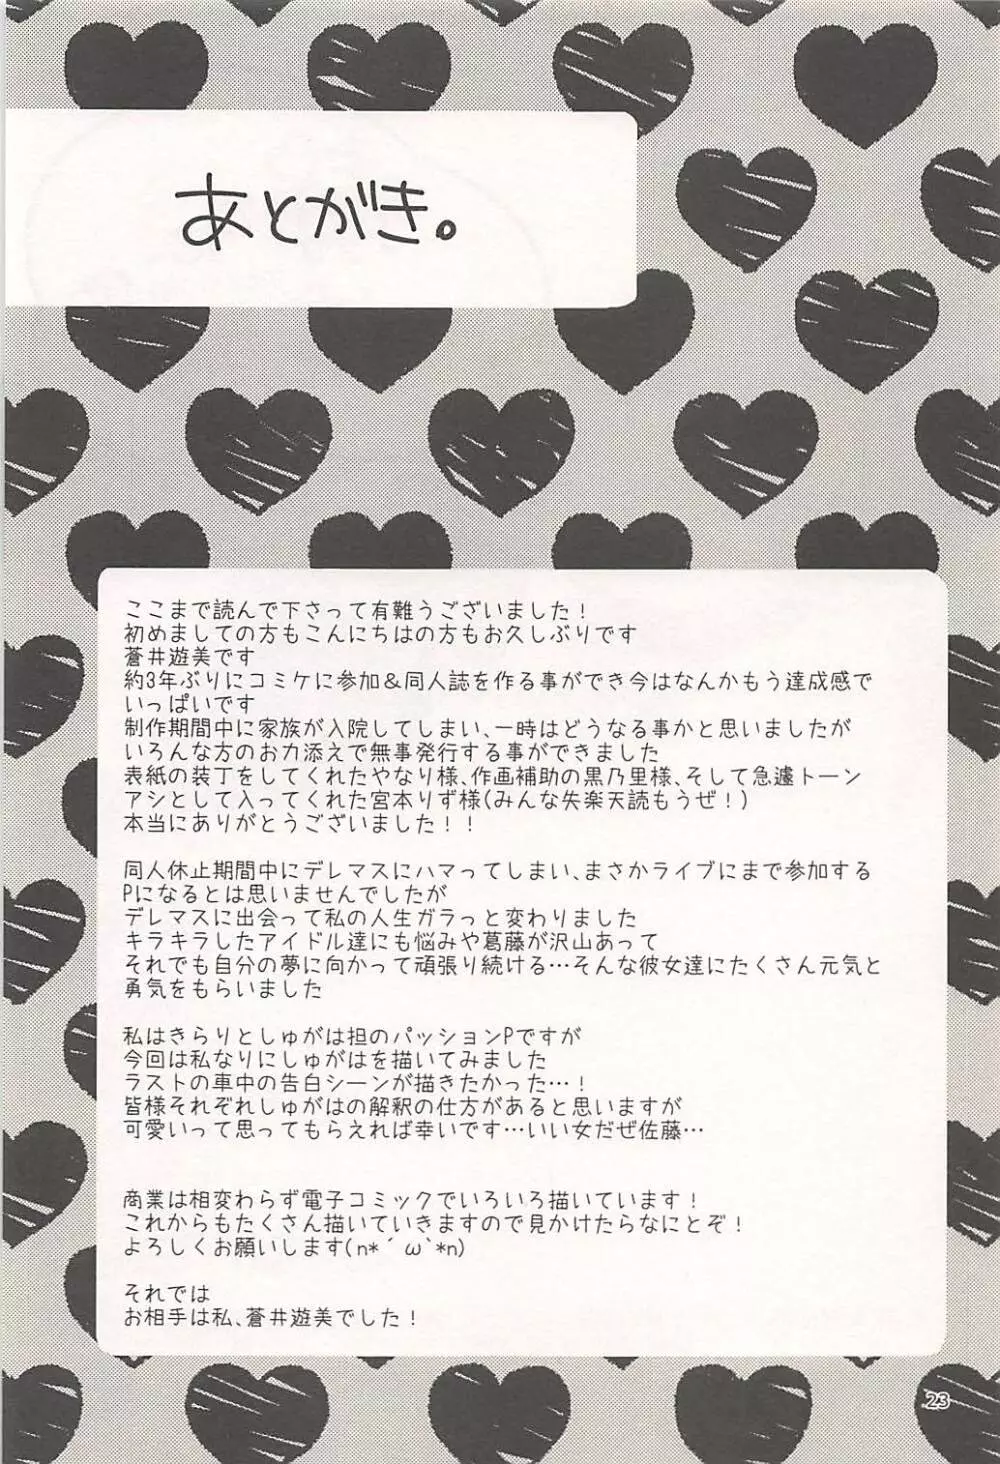 あとがき。
ここまで読んで下さって有難うございました！
初めましての方もこんにちはの方もお久しぶりです
蒼井遊美です
約3年ぶりにコミケに参加＆同人誌を作る事ができ今はなんかもう達成感で
いっぱいです
制作期間中に家族が入院してしまい、一時はどうなる事かと思いましたが
いろんな方のお力添えで無事発行する事ができました
表紙の装丁をしてくれたやなり様、作画補助の黒乃里様、そして急遽トーン
アシとして入ってくれた宮本りず様(みんな失楽天読もうぜ！)
本当にありがとうございました！！
同人休止期間中にデレマスにハマってしまい、まさかライブにまで参加する
Pになるとは思いませんでしたが
デレマスに出会って私の人生ガラっと変わりました
キラキラしたアイドル達にも悩みや葛藤が沢山あって
それでも自分の夢に向かって頑張り続ける…そんな彼女達にたくさん元気と
勇気をもらいました
私はきらりとしゅがは担のパッションPですが
今回は私なりにしゅがはを描いてみました
ラストの車中の告白シーンが描きたかった…！
皆様それぞれしゅがはの解釈の仕方があると思いますが
可愛いって思ってもらえれば幸いです…いい女だぜ佐藤…
商業は相変わらず電子コミックでいろいろ描いています！
これからもたくさん描いていきますので見かけたらなにとぞ！
よろしくお願いします(n*´ω`*n)
それでは
お相手は私、蒼井遊美でした！
23